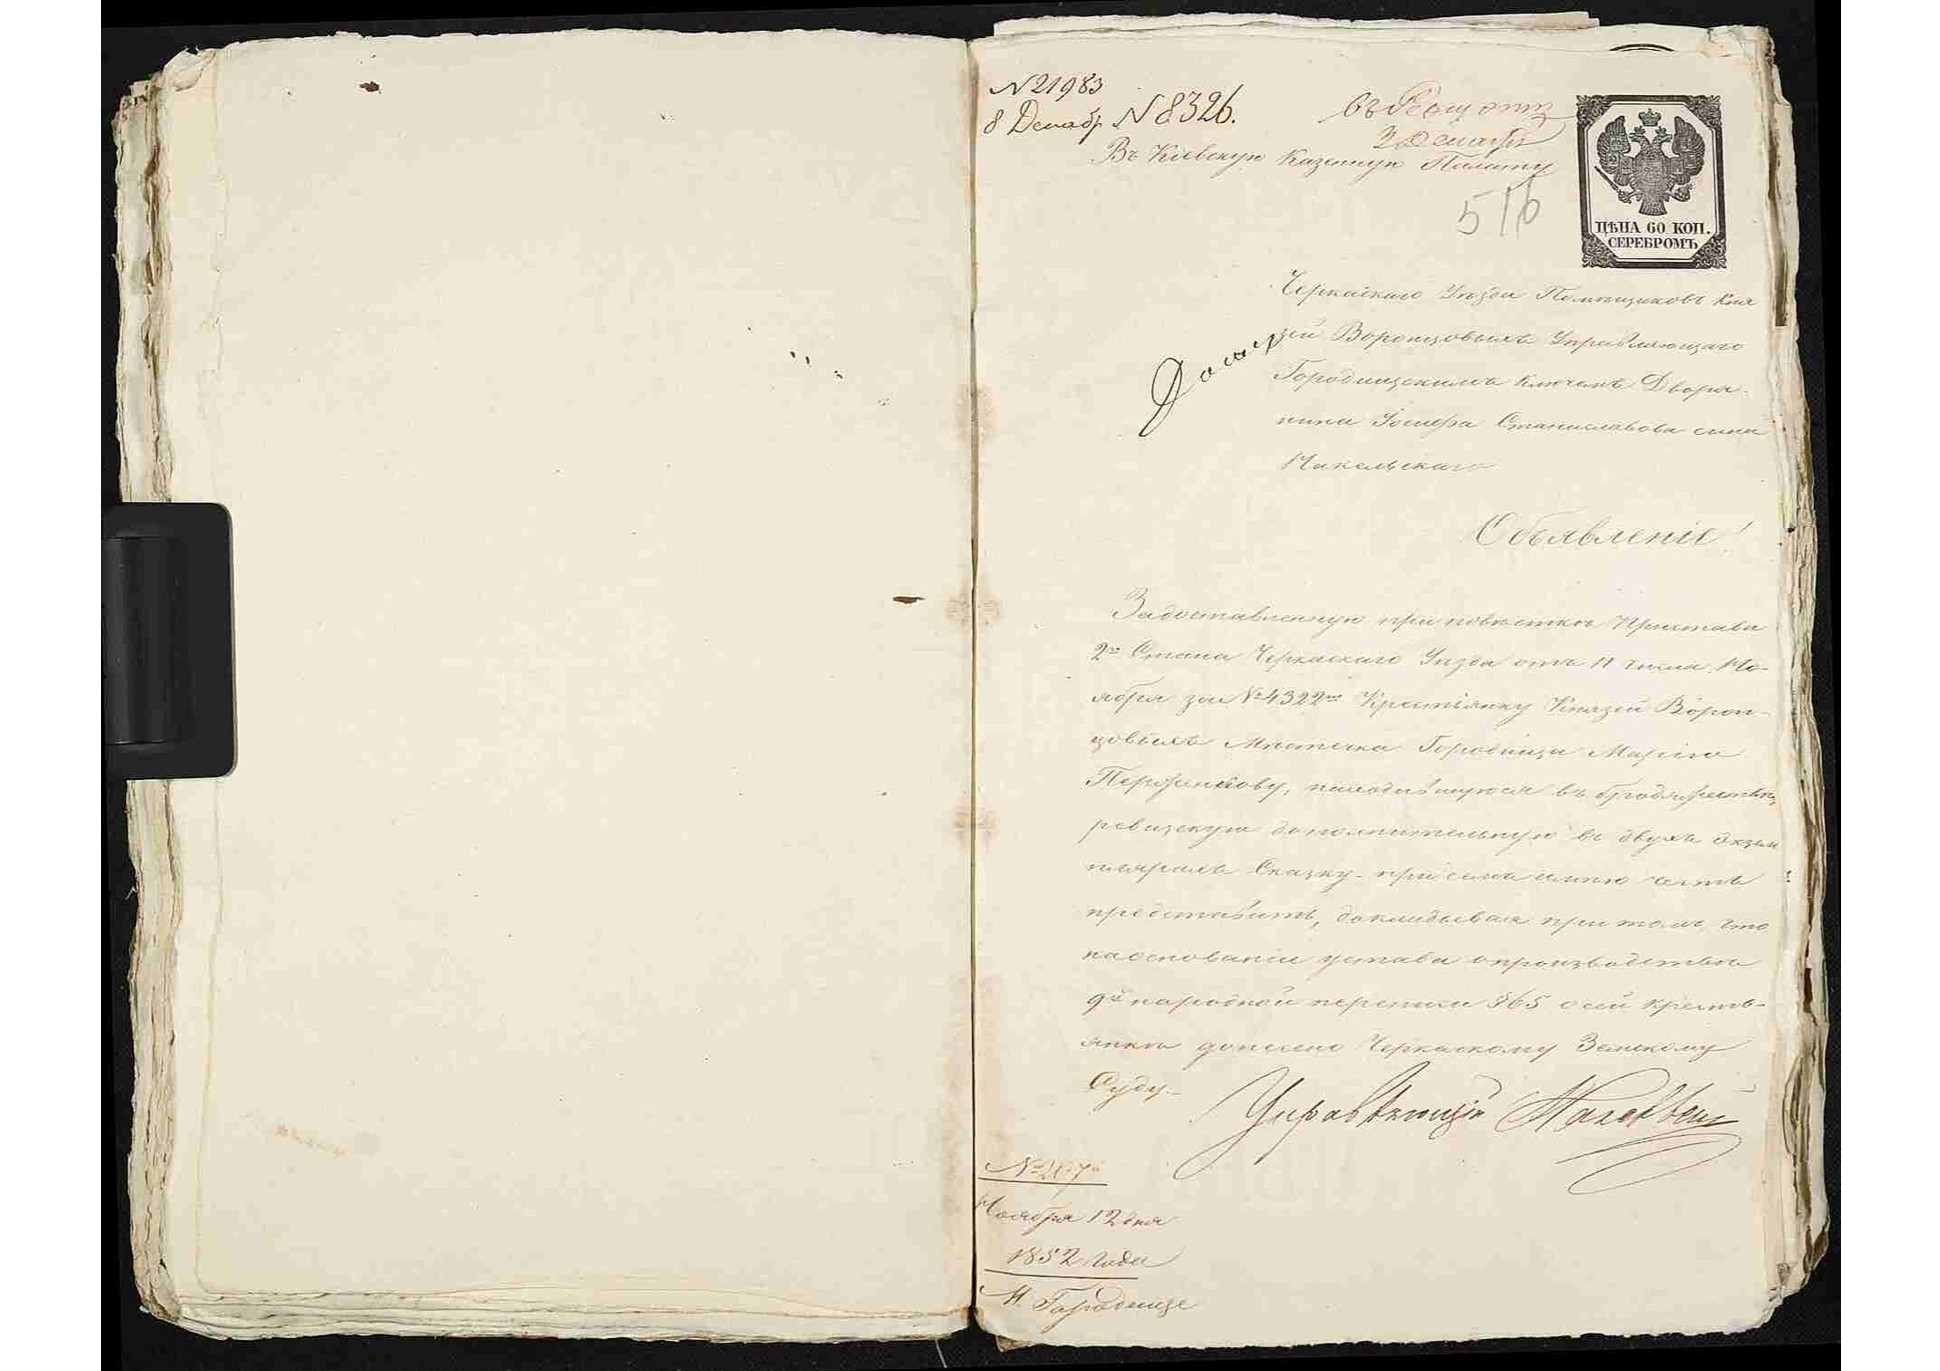 N 21983
8 Декабр N 8326.
въ Ревиз отд
2 Декабря
Въ Кіевскую Казенную Палату
516
ЦѢНА 60 КОП.
СЕРЕБРОМЪ
Черкаскаго Уѣзда Помѣщиковъ Кня
зей Воронцовыхъ Управляющаго
Городищскимъ Ключемъ Дворя-
нина Іосифа Станиславова сына
Объявленіе!
Задоставленную при повѣсткѣ Пристава
2го Стана Черкаскаго Уѣзда отъ 11 числа Но-
ября за №4322мъ Крестьянку Князей Ворон-
цовыхъ Мѣстечка Городища Марію
находившуюся въ бродяжествѣ,
ревизскую дополнительную въ двухъ экзем
плярахъ Сказку при семъ имѣю честь
представить, докладывая при томъ, что
наоснованіи устава опроизводствѣ
9й народной переписи §65 о сей кресть-
янкѣ донесено Черкаскому Земскому
Суду.
Управляющій
№ 207
Ноября 12 дня
1852 года
М. Городище